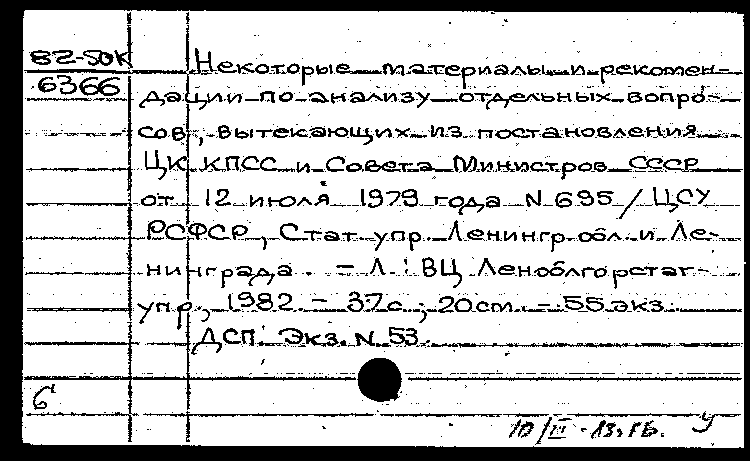 82-50К
6366
Некоторые материалы и рекомен-
дации по анализу отдельных вопро-
сов, вытекающих из постановления
ЦК КПСС и Совета Министров СССР
от 12 июля 1979 года N 695 / ЦСУ
РСФСР, Стат. упр. Ленингр. обл. и Ле-
нинграда. - Л.: ВЦ Леноблгорстат-
упр., 1982. - 37с.; 20см. - 55 экз.
ДСП. Экз. N 53.
б
10/III
У